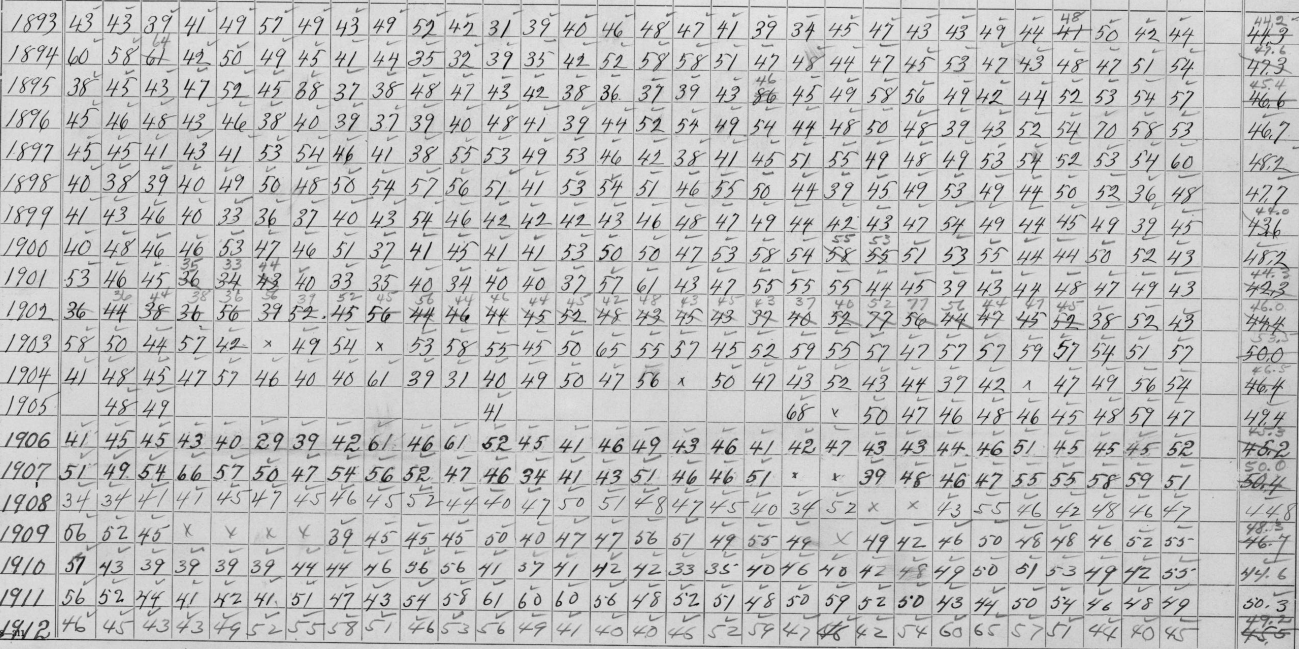 1893 43 43 39 41 49 57 49 43 49 52 42 31 39 40 46 48 47 41 39 34 45 47 43 43 49 44 41 48 50 42 44 44.2
1894 60 58 61 64 42 50 49 45 41 44 35 32 39 35 42 52 58 58 51 47 48 44 47 45 53 47 43 48 47 51 54 47.3 47.6
1895 38 45 43 47 52 45 38 37 38 48 47 43 42 38 36 37 39 43 86 46 45 49 58 56 49 42 44 52 53 54 57 46.6 45.4
1896 45 46 48 43 46 38 40 39 37 39 40 48 41 39 44 52 54 49 54 44 48 50 48 39 43 52 54 70 58 53 46.7
1897 45 45 41 43 41 53 54 46 41 38 55 53 49 53 46 42 38 41 45 51 55 49 48 49 53 54 52 53 54 60 48.2
1898 40 38 39 40 49 50 48 50 54 57 56 51 41 53 54 51 46 55 50 44 39 45 49 53 49 44 50 52 36 48 47.7
1899 41 43 46 40 33 36 37 40 43 54 46 42 42 42 43 46 48 47 49 44 42 43 47 54 49 44 45 49 39 45 43.6 44.0
1900 40 48 46 46 53 47 46 51 37 41 45 41 41 53 50 50 47 53 58 54 58 55 55 53 51 53 55 44 44 50 52 43 48.2
1901 53 46 45 36 35 34 33 43 44 40 33 35 40 34 40 40 37 57 61 43 47 55 55 55 44 45 39 43 44 48 47 49 43 42.3 44.3
36 44 38 36 56 39 52 45 56 44 46 44 45 42 48 43 45 43 37 40 52 77 56 44 47 45
1902 36 44 38 36 56 39 52 45 56 44 46 44 45 52 48 43 45 43 37 40 52 77 56 44 47 45 52 38 52 43 44.4 46.0
1903 58 50 44 57 42 x 49 54 x 53 58 55 45 50 65 55 57 45 52 59 55 57 47 57 57 59 57 54 51 57 50.0 53.5
1904 41 48 45 47 57 46 40 40 61 39 31 40 49 50 47 56 x 50 47 43 52 43 44 37 42 x 47 49 56 54 46.4 46.5
1905 48 49 41 68 x 50 47 46 48 46 45 48 59 47 49.4
1906 41 45 45 43 40 29 39 42 61 46 61 52 45 41 46 49 43 46 41 42 47 43 43 44 46 51 45 45 45 52 45.2 45.3
1907 51 49 54 66 57 50 47 54 56 52 47 46 34 41 43 51 46 46 51 x x 39 48 46 47 55 55 58 59 51 50.4 50.0
1908 34 34 41 41 45 47 45 46 45 52 44 40 47 50 51 48 47 45 40 34 52 x x 43 55 46 42 48 46 47 44.8
1909 66 52 45 x x x x 39 45 45 45 50 40 47 47 56 51 49 55 44 x 49 42 46 50 48 48 46 52 55 46.7 48.3
1910 57 43 39 39 39 39 44 44 46 36 56 41 57 41 42 42 33 35 40 46 40 42 48 49 50 51 53 49 42 55 44.6
1911 56 52 44 41 42 41 51 47 43 54 58 61 60 60 56 48 52 51 48 50 59 52 50 43 44 50 54 46 48 49 50.3
1912 46 45 43 43 49 52 55 58 51 46 53 56 49 41 40 40 46 52 59 47 46 42 54 60 65 57 51 44 40 45 45.5 49.2